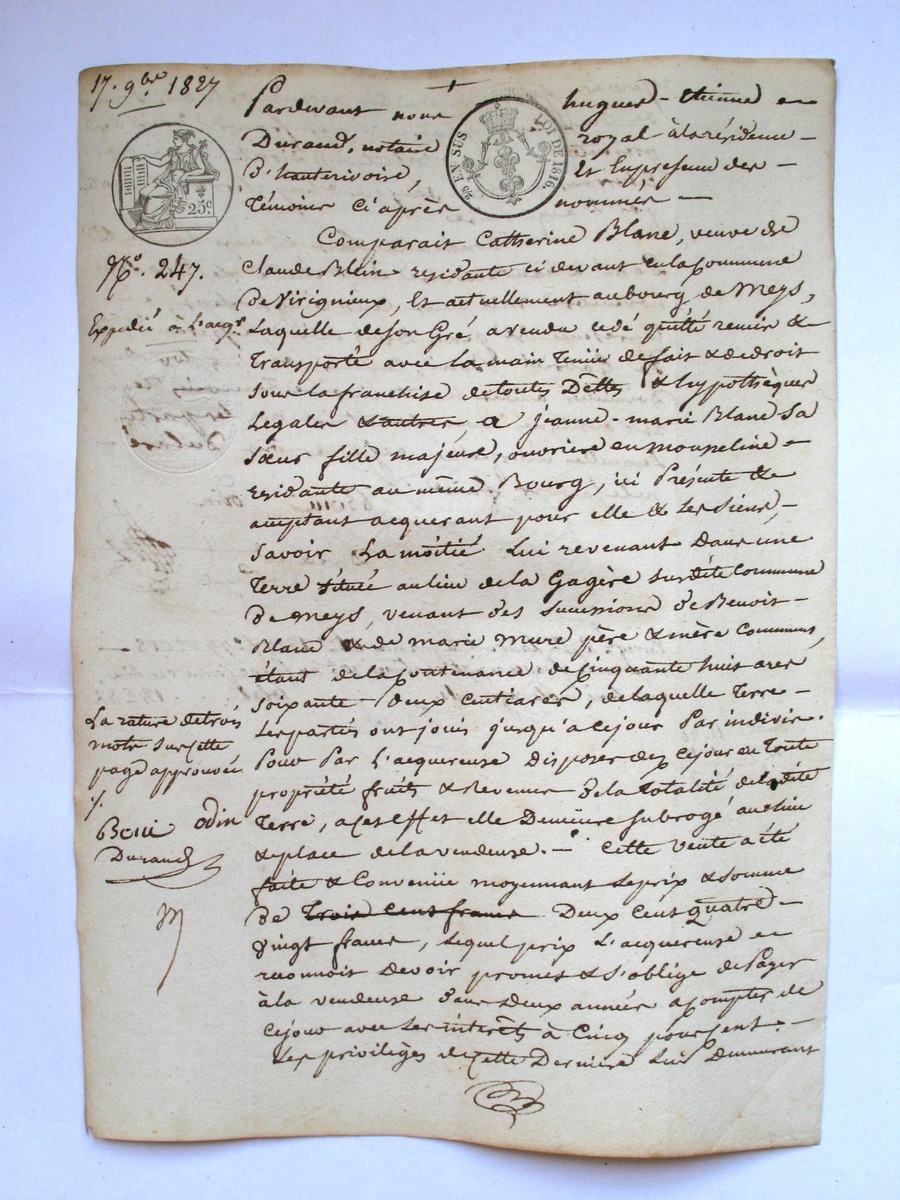 17. 9bre 1827
Pardevant nous hugues-étienne
Durand, notaire royal à la résidence
d'hauterivoire, Et En présence des
témoins ci après nommés
25c
25 EN SUS
LOI DE 1816.
Comparait Catherine Blanc, veuve de
No. 247.
Claude Blein residante ci devant en la Commune
de Virignieux, Et actuellement au bourg de Meys,
Expédié à L'acqr
Laquelle de son Gré a vendu cédé quitté remis &
transporté avec la main tenüe de fait & de droit
sous la franchise de toutes Dettes & hypothèques
Legales & autres, a jeanne-marie Blanc Sa
sœur fille majeure, ouvrière en mousseline
residante au même Bourg, ici Présente &
acceptant acquerant pour elle & les siens,
Savoir La moitié Lui revenant Dans une
terre située au lieu de la Gagère sur dite Commune
de Meys, venant des successions de Benoit
Blanc & de marie Mure père & mère communs,
étant de la Contenance de Cinquante huit ares
soixante-deux centiares, de laquelle terre
Les parties ont joui jusqu'a ce jour Par indivis.
La rature de trois
mots sur cette
page approuvée
Pour Par L'acquereuse disposer dez ce jour en toute
propriété fruits & Revenus de la totalité de la dite
Terre, a cet Effet elle Demeure subrogé au lieu
Odin
Durand
& place de la vendeuse. Cette Vente a été
faite & Convenüe moyennant le prix & somme
de trois cent francs Deux Cent Quatre
Vingt francs, lequel prix L'acquereuse
reconnoit Devoir promet & s'oblige de Payer
à la vendeuse dans Deux années a Compter de
ce jour avec les intérêts à Cinq pour cent.
Les privilèges de cette Dernière Lui Demeurant